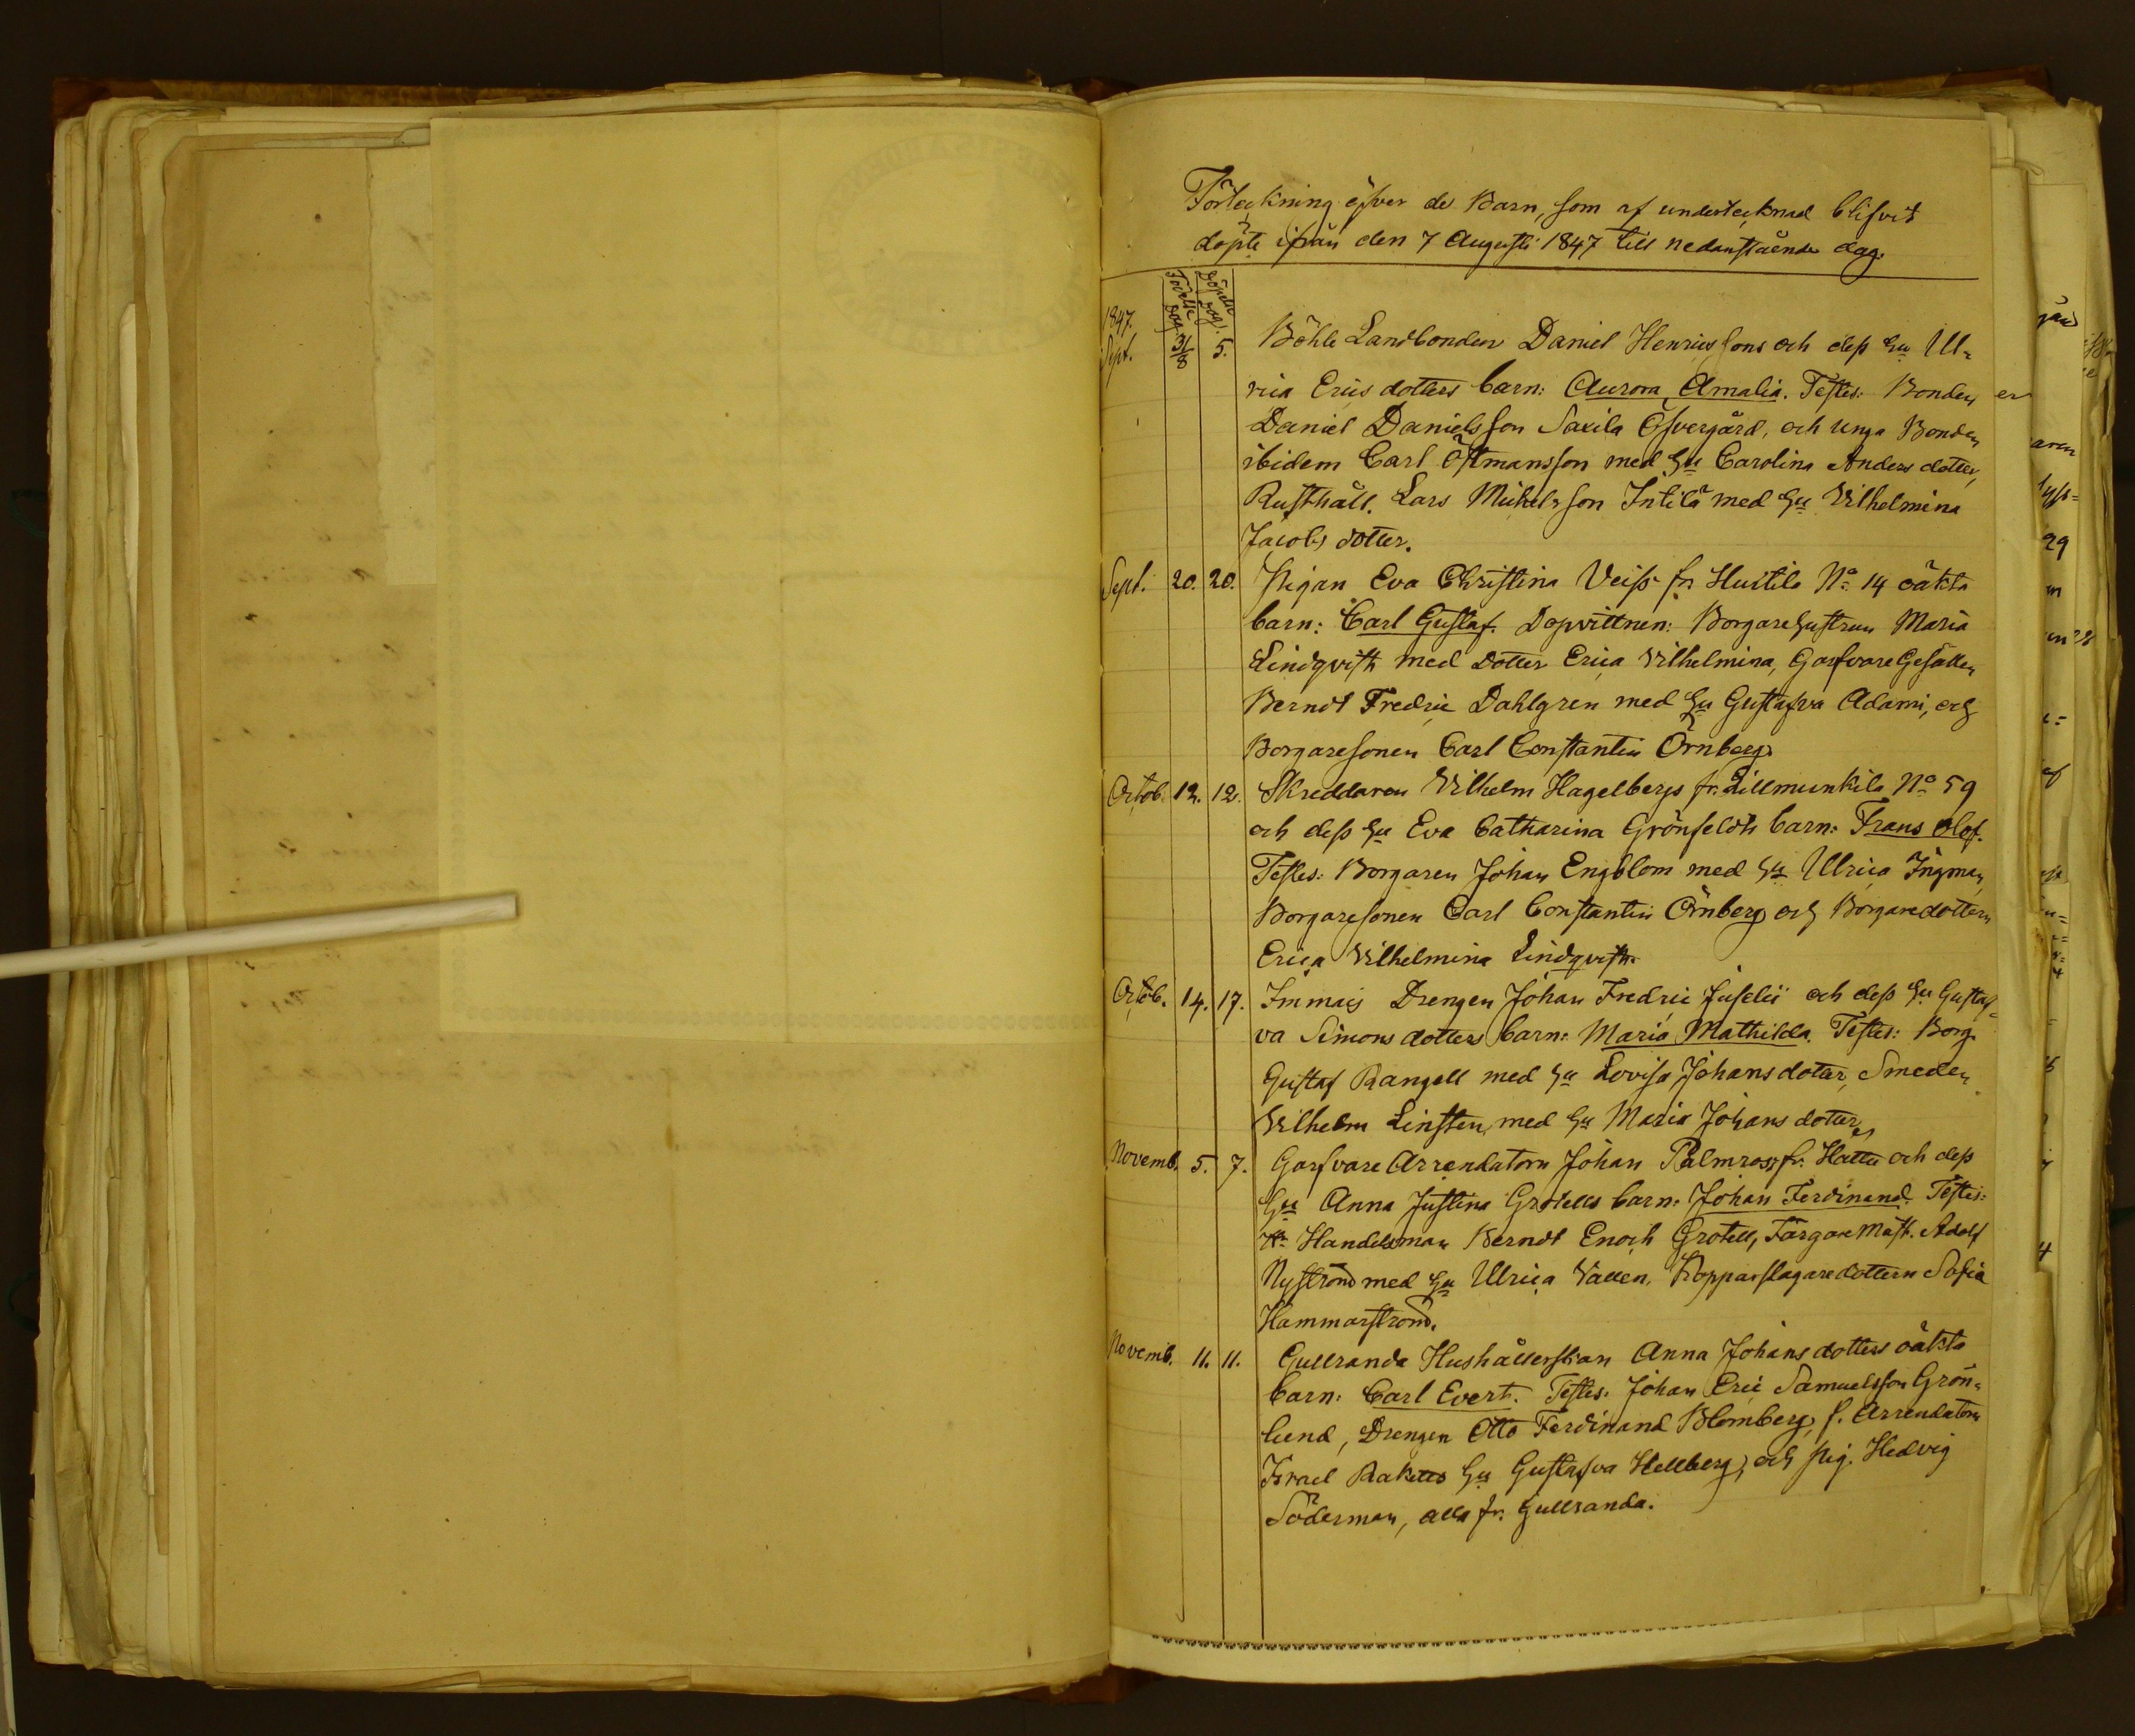 Förteckning öfver de Barn, som af undertecknad blifvit
döpte ifrån den 7 Augusti 1847 till nedanstående dag.
Födelse dag. Döpelse dag.
1847.
Sept. 31/8 5. Böhle Landbonden Daniel Henricssons och dess Hu Ul-
rica Ericsdotters barn: Aurora Amalia. Testes: Bonden
Daniel Danielsson Saxila Öfvergård, och unga Bonden
ibidem Carl Östmansson med Hu Carolina Andersdotter,
Rusthåll. Lars Michelsson Intilä med Hu Vilhelmina
Jacobsdotter.
Sept. 20. 20. Pigan Eva Christina Veiss fr. Humtila No 14 oäkta
barn: Carl Gustaf. Dopvittnen: Borgarehustrun Maria
Lindqvist med dotter Erica Vilhelmina, Garfvare Gesällen
Berndt Fredric Dahlgren med Hu Gustafva Adami, och
Borgaresonen Carl Constantin Örnberg.
Octob. 12. 12. Skreddaren Vilhelm Hagelbergs fr. Lillmunkila No 59
och dess Hu Eva Catharina Grönfeldts barn: Frans Olof.
Testes: Borgaren Johan Engblom med Hu Ulrica Ingman,
Borgaresonen Carl Constantin Örnberg och Borgaredottern
Erica Vilhelmina Lindqvist.
Octob. 14. 17. Immais Drengen Johan Fredric Juselii och dess Hu Gustaf-
va Simonsdotters barn: Maria Mathilda. Testes: Borg.
Gustaf Rangell med Hu Lovisa Johansdotter, Smeden
Vilhelm Linsten med Hu Maria Johansdotter,
Novemb. 5. 7. Garfvare Arrendatorn Johan Palmros fr. Hattu och dess
Hu Anna Justina Grotells barn: Johan Ferdinand. Testes:
Handelsman Berndt Enoch Grotell, Färgare Mäst. Adolf
Nyström med Hu Ulrica Vallen, Kopparslagaredottern Sofia
Hammarström.
Novemb. 11. 11. Gullranda Hushållerskan Anna Johansdotters oäkta
barn: Carl Evert. Testes: Johan Eric Samuelsson Grön-
lund, Drengen Otto Ferdinand Blomberg, f. Arrendatorn
Israel Rakells Hu Gustafva Hellberg, och pig. Hedvig
Söderman, alla fr. Gullranda.